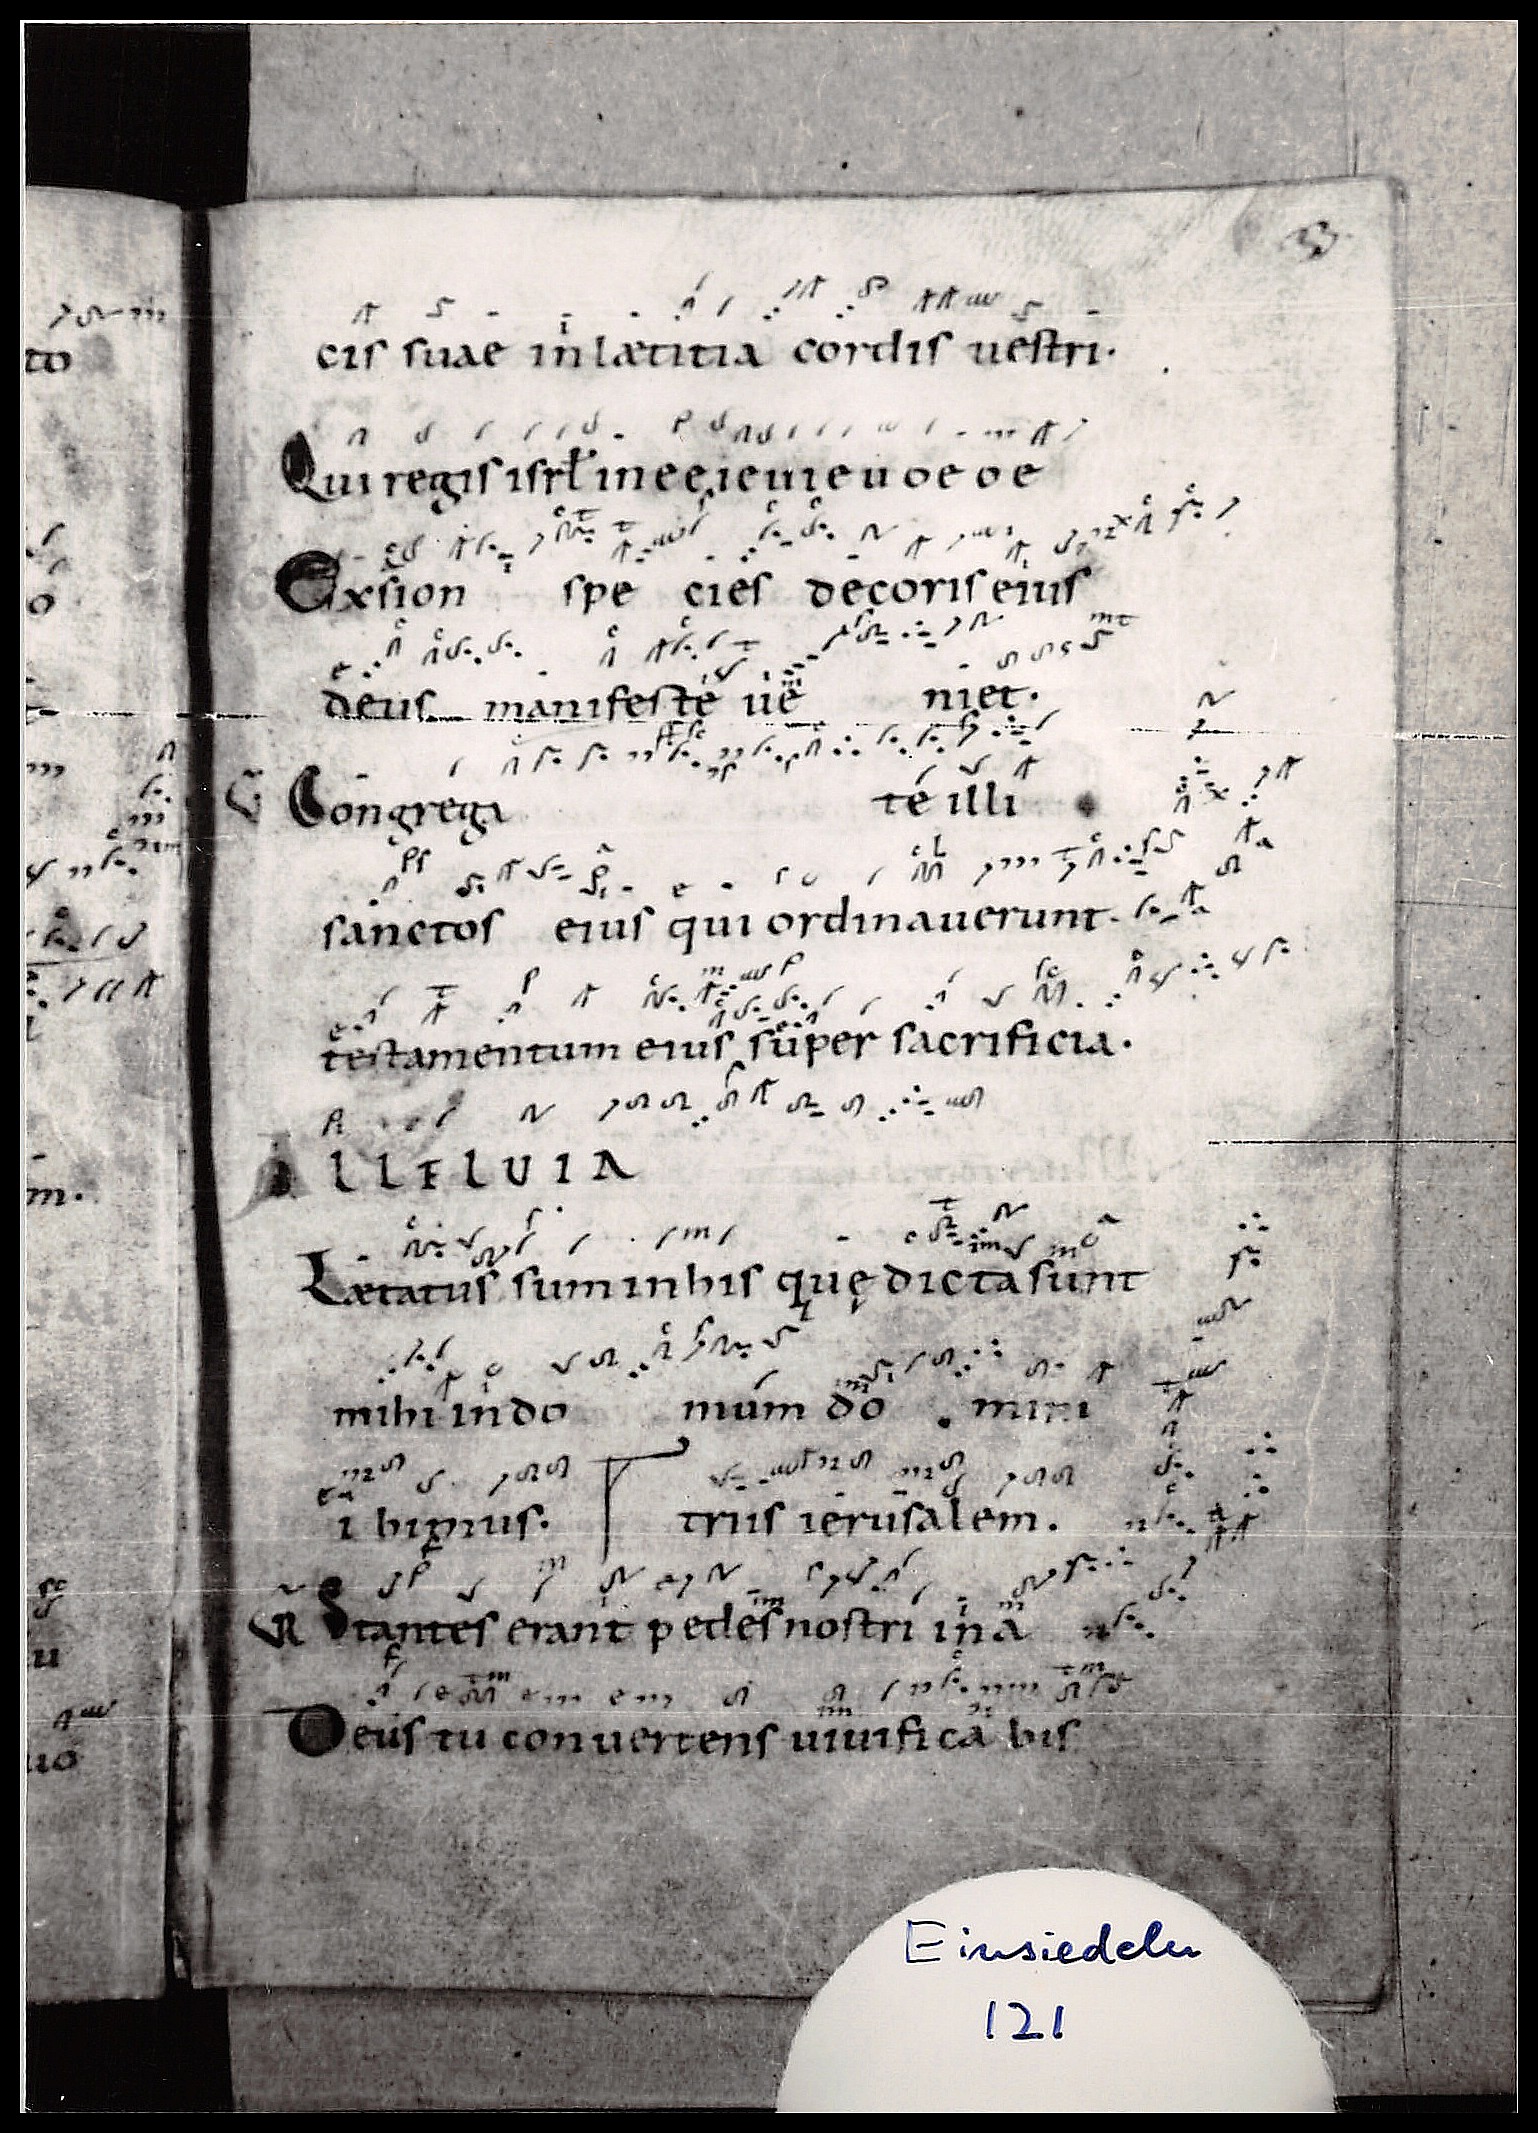 3
cis suae in lætitia cordis uestri.
Qui regis isrł in e e ie ui e u o e o e
Exsion spe cies decoris eius
deus manifeste ue niet.
Congrega te illi
sanctos eius qui ordinauerunt.
testamentum eius super sacrificia.
ALLELUIA
Lætatus sum in his quę dicta sunt
mihi in do mum do mini
i bimus. triis ierusalem.
Stantes erant pedes nostri in a
Deus tu conuertens uiuifica bis
to
o
m.
u
uo
Einsiedeln
121